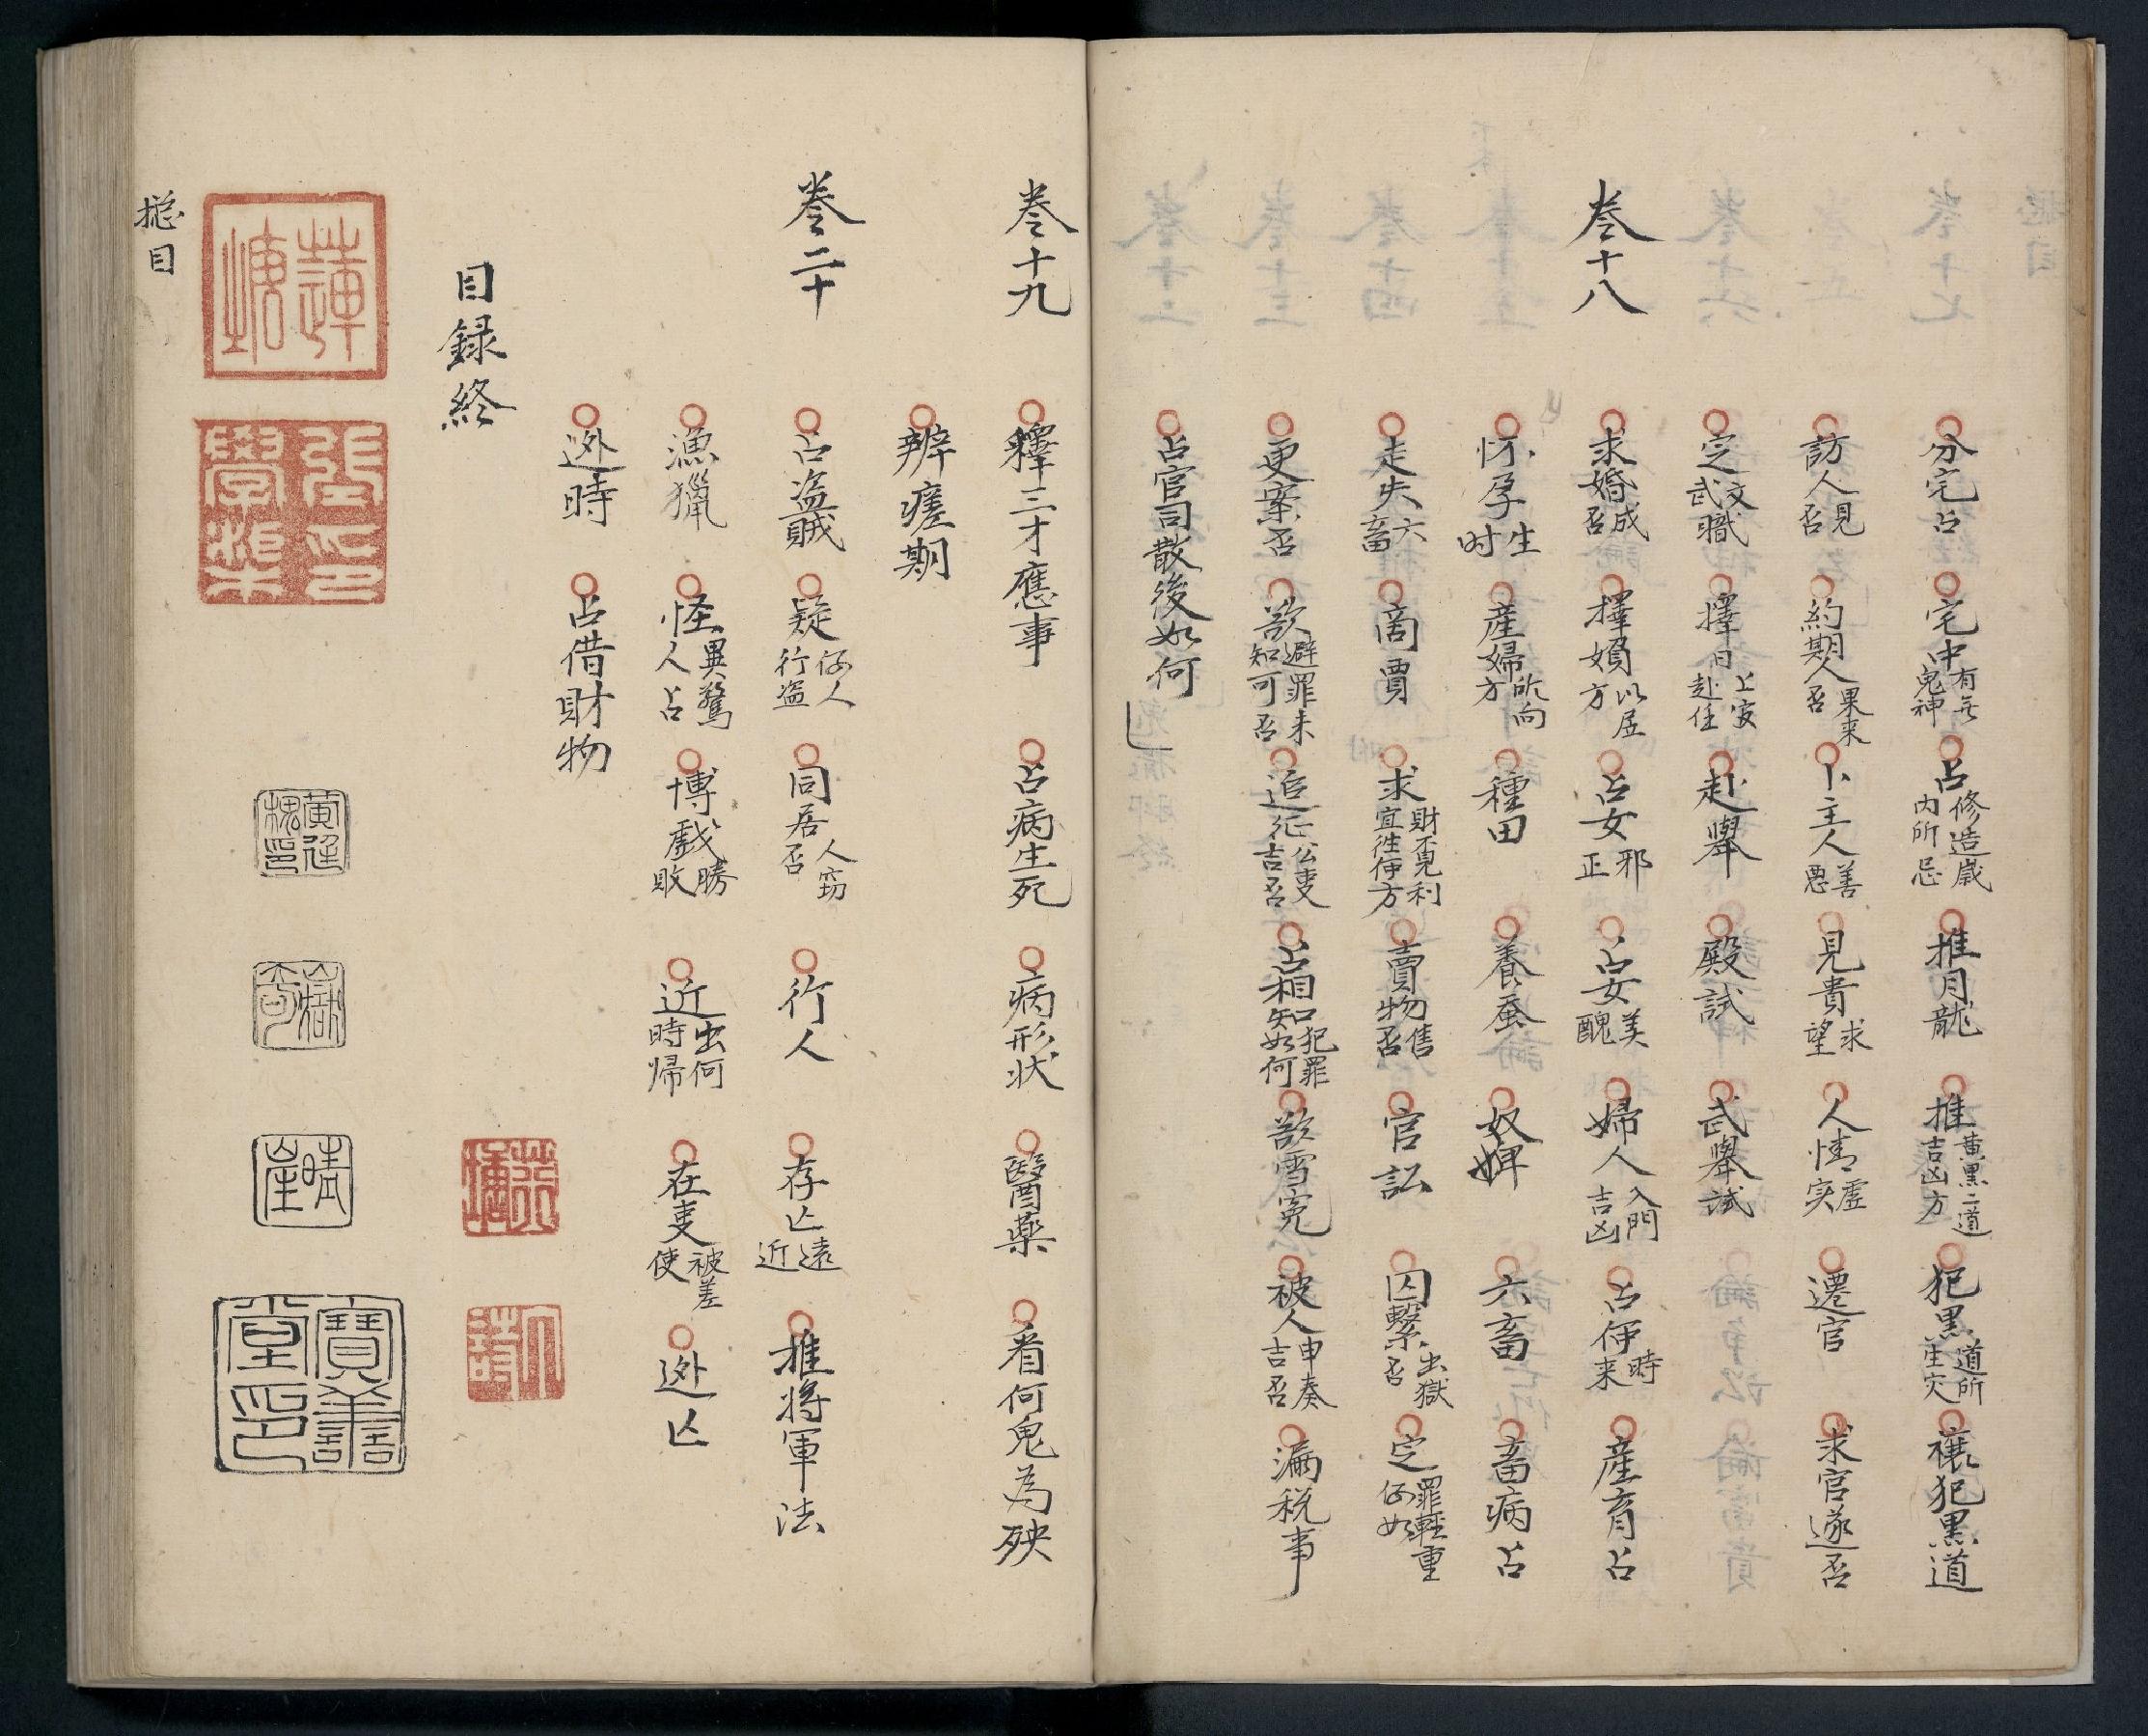 分宅占 宅中有无鬼神 占修造歲内所忌 推月龍 推黄黒二道吉凶方 犯黒道所生灾 禳犯黒道
訪人見否 約期人果来否 卜主人善悪 見貴求望 人情虚实 遷官 求官遂否
定文武職 擇日上官赴任 赴舉 殿試 武舉試
巻十八 求婚成否 擇婚以居方 占女邪正 占女美醜 婦人入門吉凶 占何時来 産育占
怀孕生时 産婦所向方 種田 養蚕 奴婢 六畜 畜病占
走失六畜 商賈 求財不見利宜徃何方 賣物售否 官訟 囚繋出獄否 定罪輕重何如
更案否 欲避罪未知可否 追征公吏吉否 占相知犯罪如何 欲雪寃 被人申奏吉否 漏税事
占官司散後如何
巻十九 釋三才應事 占病生死 病形状 醫藥 看何鬼為殃
辨瘥期
巻二十 占盗賊 疑何人行盗 同居人窃否 行人 存亾遠近 推將軍法
漁獵 怪異驚人占 博戯勝敗 近出何時帰 在吏被差使 逃亾
逃時 占借財物
目録終
捴目
寶善堂印
晴崖